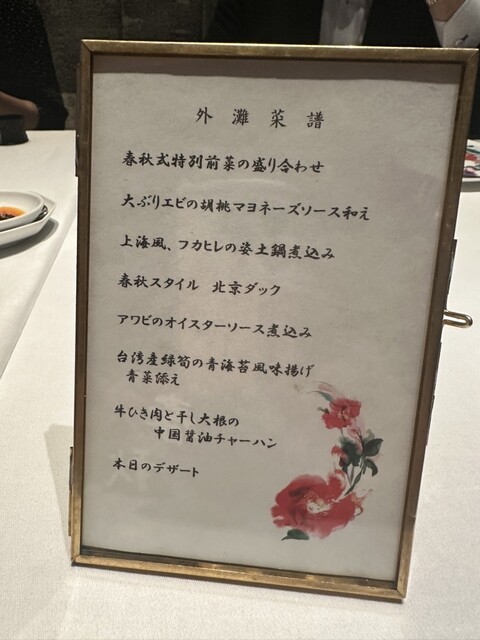 外灘菜譜
春秋式特別前菜の盛り合わせ
大ぶりエビの胡桃マヨネーズソース和え
上海風、フカヒレの姿土鍋煮込み
春秋スタイル 北京ダック
アワビのオイスターソース煮込み
台湾産緑筍の青海苔風味揚げ
青菜添え
牛ひき肉と干し大根の
中国醤油チャーハン
本日のデザート